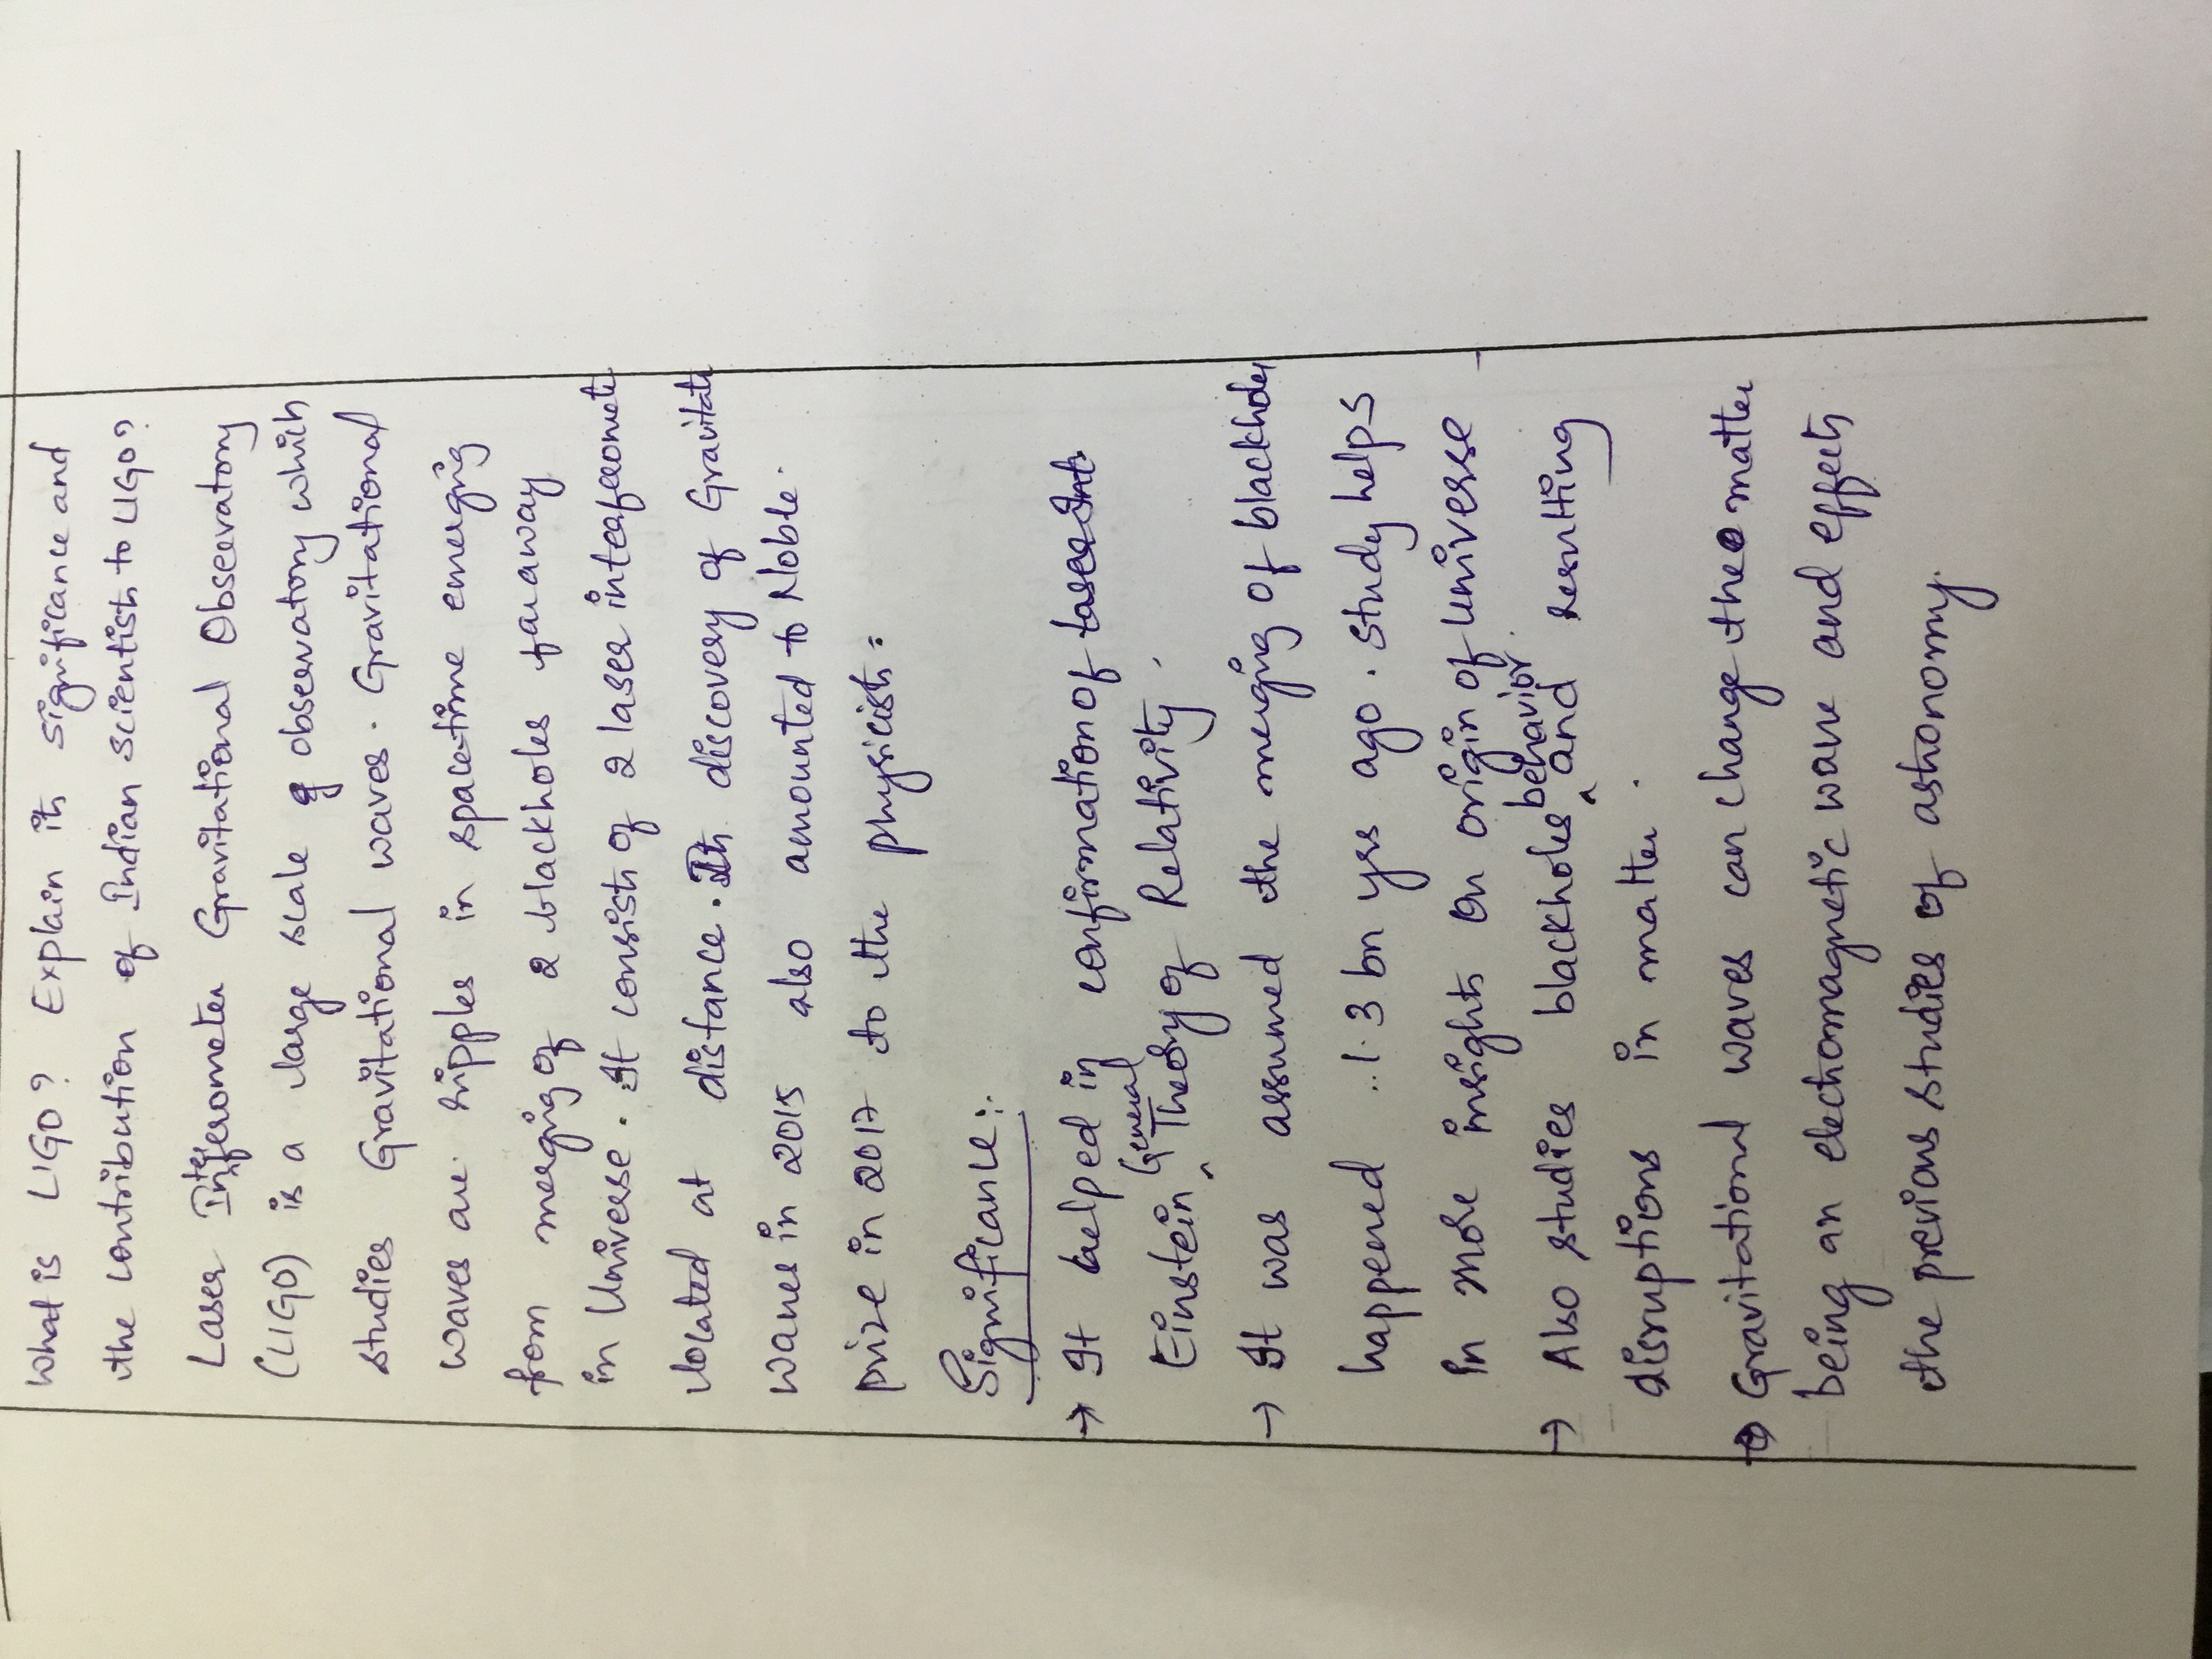 What is LIGO? Explain its significance and
the contribution of Indian scientists to LIGO?
Laser Interferometer Gravitational Observatory
(LIGO) is a large scale observatory which
studies Gravitational waves. Gravitational
waves are ripples in spacetime emerging
from merging of 2 blackholes faraway
in Universe. It consists of 2 laser interferomete
located at distance. Its discovery of Gravitati
waves in 2015 also amounted to Noble
prize in 2017 to the physicists.
Significance:
→ It helped in confirmation of
Einstein General Theory of Relativity.
→ It was assumed the merging of blackholes
happened 1.3 bn yrs ago. Study helps
in more insights on origin of Universe
→ Also studies blackholes behavior and resulting
disruptions in matter.
→ Gravitational waves can change the matter
being an electromagnetic wave and effects
the previous studies of astronomy.